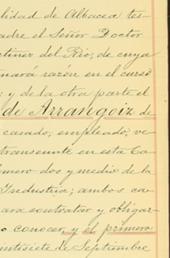 lidad de Albacea tes-
adre el Señor Doctor
ctinez del Rio, de cuya
mará razón en el curso
; y de la otra parte el
de Arrangoiz de
casado, empleado, ve-
transeunte en esta Ca-
mero dos y medio de la
Industria; ambos ca-
ara contratar y obligar-
o conozco, y el primero
intisiete de Septiembre